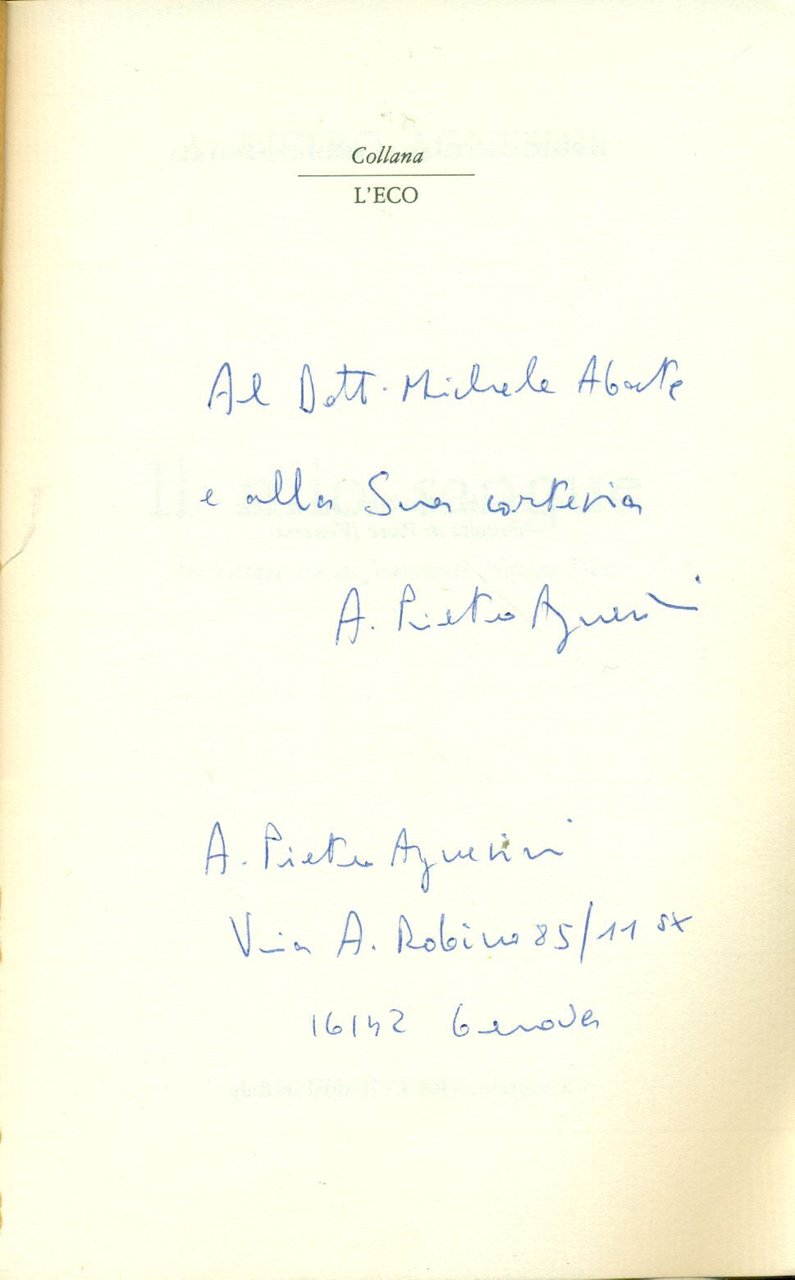 Collana
L'ECO
Al Dott. Michele Abate
e alla Sua cortesia
A. Pietro
A. Pietro
Via A. Robino 85/11 sx
16142 Genova